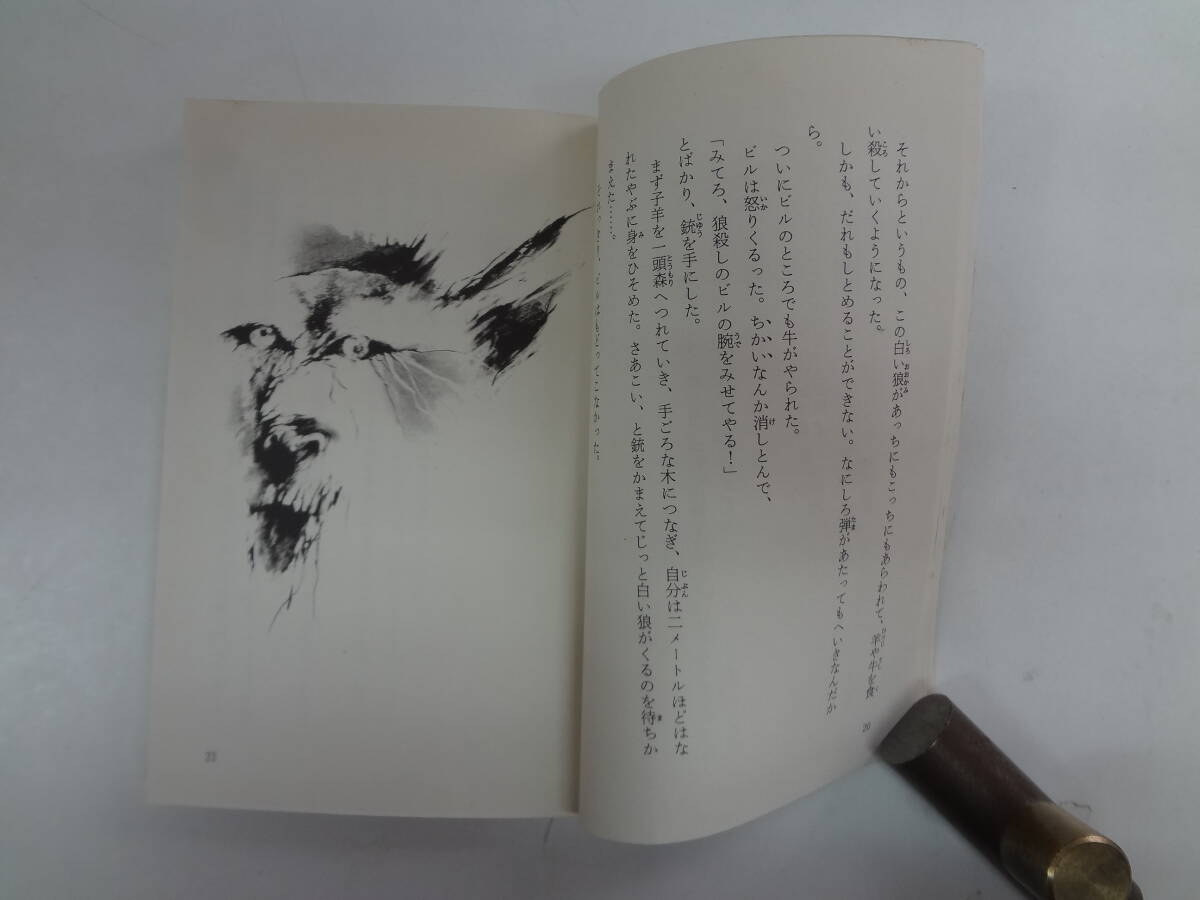 それからというもの、この白い狼があっちにもこっちにもあらわれて、羊や牛を食
い殺していくようになった。
しかも、だれもしとめることができない。なにしろ弾があたってもへいきなんだか
ら。
ついにビルのところでも牛がやられた。
ビルは怒りくるった。ちかいなんか消しとんで、
「みてろ、狼殺しのビルの腕をみせてやる!」
とばかり、銃を手にした。
まず子羊を一頭森へつれていき、手ごろな木につなぎ、自分は二メートルほどはな
れたやぶに身をひそめた。さあこい、と銃をかまえてじっと白い狼がくるのを待ちか
まえた……。
ビルはもどってこなかった。
20
23